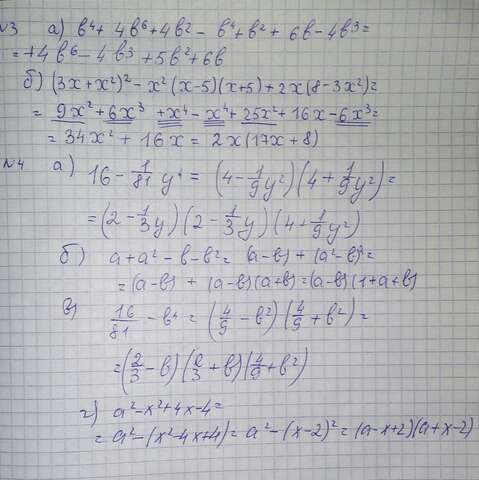 №3 а) b⁴ + 4b⁶ + 4b² - b⁴ + b² + 6b - 4b³ =
= +4b⁶ - 4b³ + 5b² + 6b
б) (3x + x²)² - x²(x-5)(x+5) + 2x(8-3x²) =
= 9x² + 6x³ + x⁴ - x⁴ + 25x² + 16x - 6x³ =
= 34x² + 16x = 2x(17x + 8)
№4 а) 16 - 1/81 y⁴ = (4 - 1/9 y²)(4 + 1/9 y²) =
= (2 - 1/3 y)(2 - 1/3 y)(4 + 1/9 y²)
б) a + a² - b - b² = (a-b) + (a²-b)² =
= (a-b) + (a-b)(a+b) = (a-b)(1+a+b)
в) 16/81 - b⁴ = (4/9 - b²)(4/9 + b²) =
= (2/3 - b)(2/3 + b)(4/9 + b²)
г) a² - x² + 4x - 4 =
= a² - (x² - 4x + 4) = a² - (x-2)² = (a-x+2)(a+x-2)